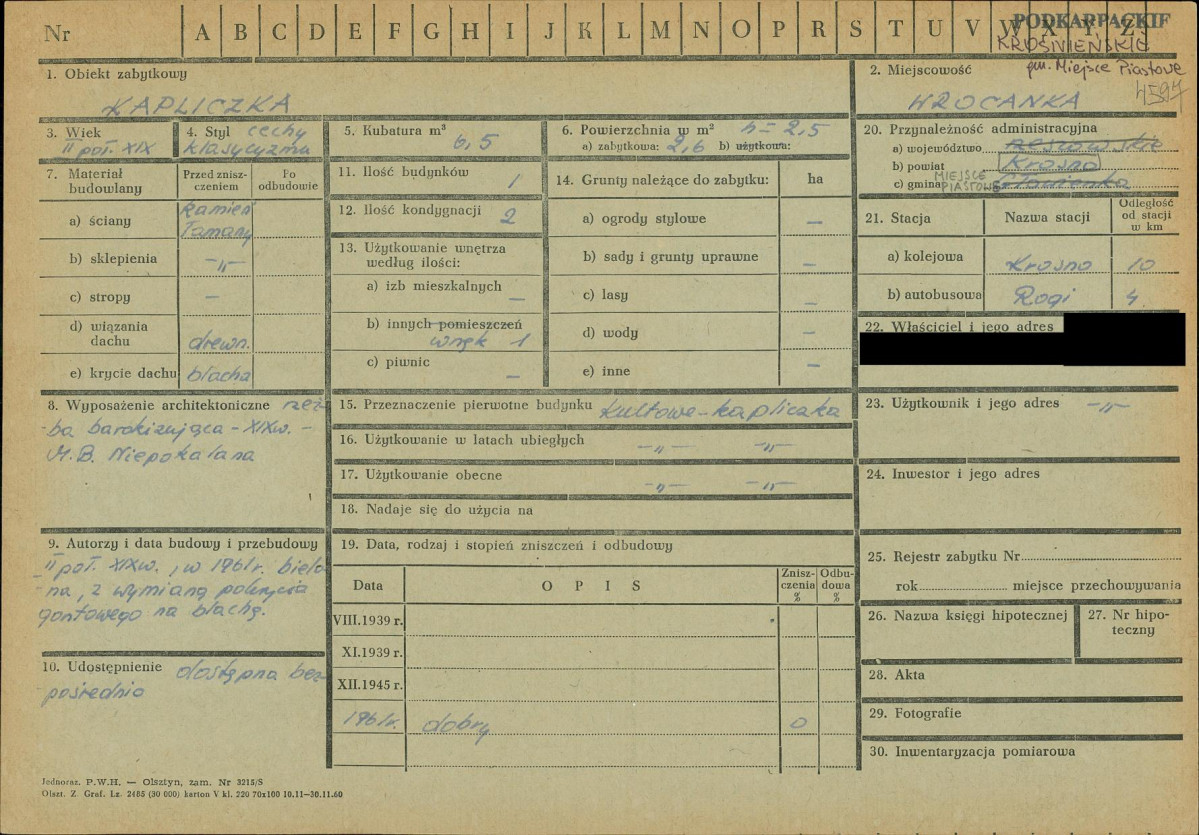 Nr A B C D E F G H I J K L M N O P R S T U V W X Y Z
PODKARPACKIE
KROŚNIEŃSKIE
gm. Miejsce Piastowe
4597
1. Obiekt zabytkowy
KAPLICZKA
2. Miejscowość
WROCANKA
3. Wiek
II poł. XIX
4. Styl cechy
klasycyzmu
5. Kubatura m³
6,5
6. Powierzchnia w m² h = 2,5
a) zabytkowa: 2,6 b) użytkowa:
20. Przynależność administracyjna
a) województwo rzeszowskie
b) powiat Krosno
c) gmina MIEJSCE
PIASTOWE
7. Materiał
budowlany
Przed znisz-
czeniem
Po
odbudowie
a) ściany
kamień
łamany
b) sklepienia -„-
c) stropy –
d) wiązania
dachu drewn.
e) krycie dachu blacha
11. Ilość budynków 1
12. Ilość kondygnacji 2
13. Użytkowanie wnętrza
według ilości:
a) izb mieszkalnych –
b) innych pomieszczeń
wnęk 1
c) piwnic –
14. Grunty należące do zabytku: ha
a) ogrody stylowe –
b) sady i grunty uprawne –
c) lasy –
d) wody –
e) inne –
21. Stacja Nazwa stacji
Odległość
od stacji
w km
a) kolejowa Krosno 10
b) autobusowa Rogi 4
22. Właściciel i jego adres
8. Wyposażenie architektoniczne rzeź-
ba barokizująca – XIXw. –
M.B. Niepokalana
15. Przeznaczenie pierwotne budynku kultowe – kapliczka
16. Użytkowanie w latach ubiegłych -„- -„-
17. Użytkowanie obecne -„- -„-
18. Nadaje się do użycia na
23. Użytkownik i jego adres -„-
24. Inwestor i jego adres
9. Autorzy i data budowy i przebudowy
II poł. XIXw., w 1961r. bielo-
na, z wymianą pokrycia
gontowego na blachę.
10. Udostępnienie dostępna bez-
pośrednio
19. Data, rodzaj i stopień zniszczeń i odbudowy
Data O P I S
Znisz-
czenia
%
Odbu-
dowa
%
VIII.1939 r.
XI.1939 r.
XII.1945 r.
1961r. dobry 0
25. Rejestr zabytku Nr
rok miejsce przechowywania
26. Nazwa księgi hipotecznej
27. Nr hipo-
teczny
28. Akta
29. Fotografie
30. Inwentaryzacja pomiarowa
Jednoraz. P.W.H. — Olsztyn, zam. Nr 3215/S
Olszt. Z. Graf. Lz. 2485 (30 000) karton V kl. 220 70x100 10.11—30.11.60